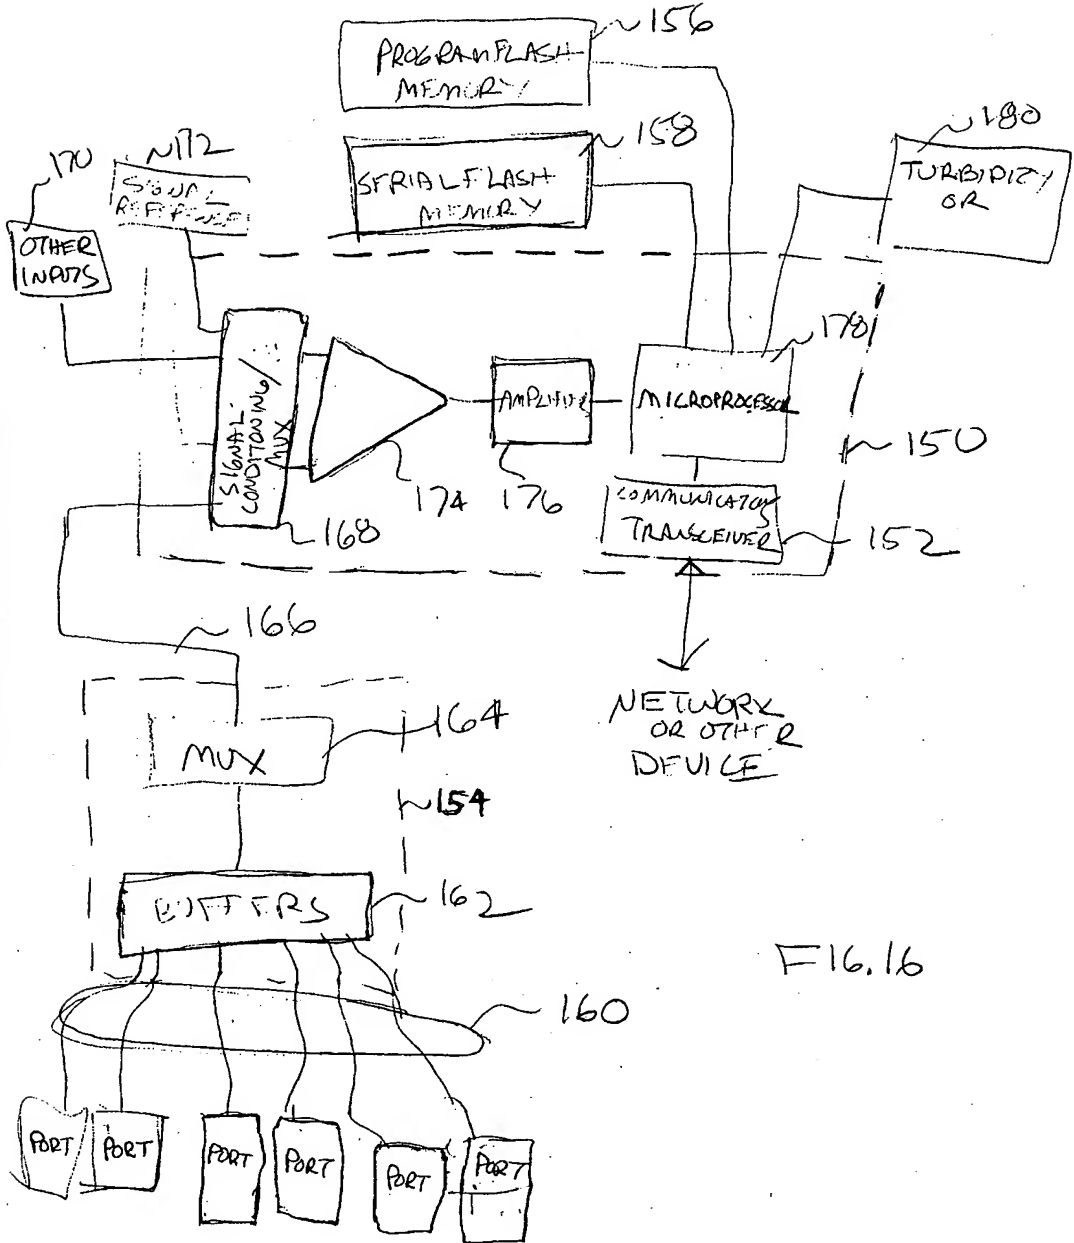 156
PROGRAM FLASH
MEMORY
158
SERIAL FLASH
MEMORY
180
TURBIDITY
OR
170
172
SIGNAL
REFERENCE
OTHER
INPUTS
SIGNAL
CONDITONING/
MUX
168
174
AMPLIFIER
176
178
MICROPROCESSOR
150
COMMUNICATIONS
TRANSCEIVER
152
NETWORK
OR OTHER
DEVICE
166
MUX
164
154
BUFFERS
162
160
FIG.16
PORT
PORT
PORT
PORT
PORT
PORT